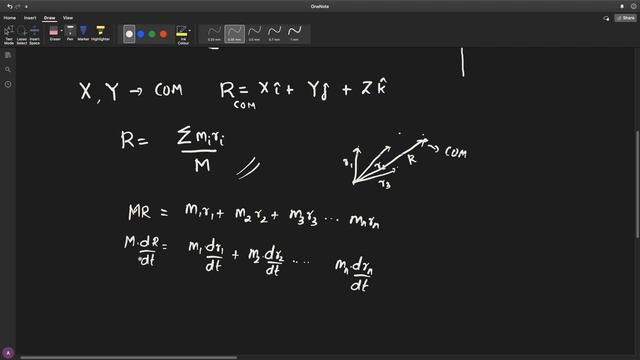 OneNote
Home Insert Draw View
Text Mode
Lasso Select
Insert Space
Eraser
Pen
Marker
Highlighter
Ink Colour
0.25 mm
0.35 mm
0.5 mm
0.7 mm
1 mm
X, Y → COM R = Xî + Yĵ + Zk̂
COM
R = Σ mᵢrᵢ
M
r₁ r₂ R → COM
r₃
MR = m₁r₁ + m₂r₂ + m₃r₃ ... mₙrₙ
M·dR/dt = m₁dr₁/dt + m₂·dr₂/dt .... mₙ·drₙ/dt
A